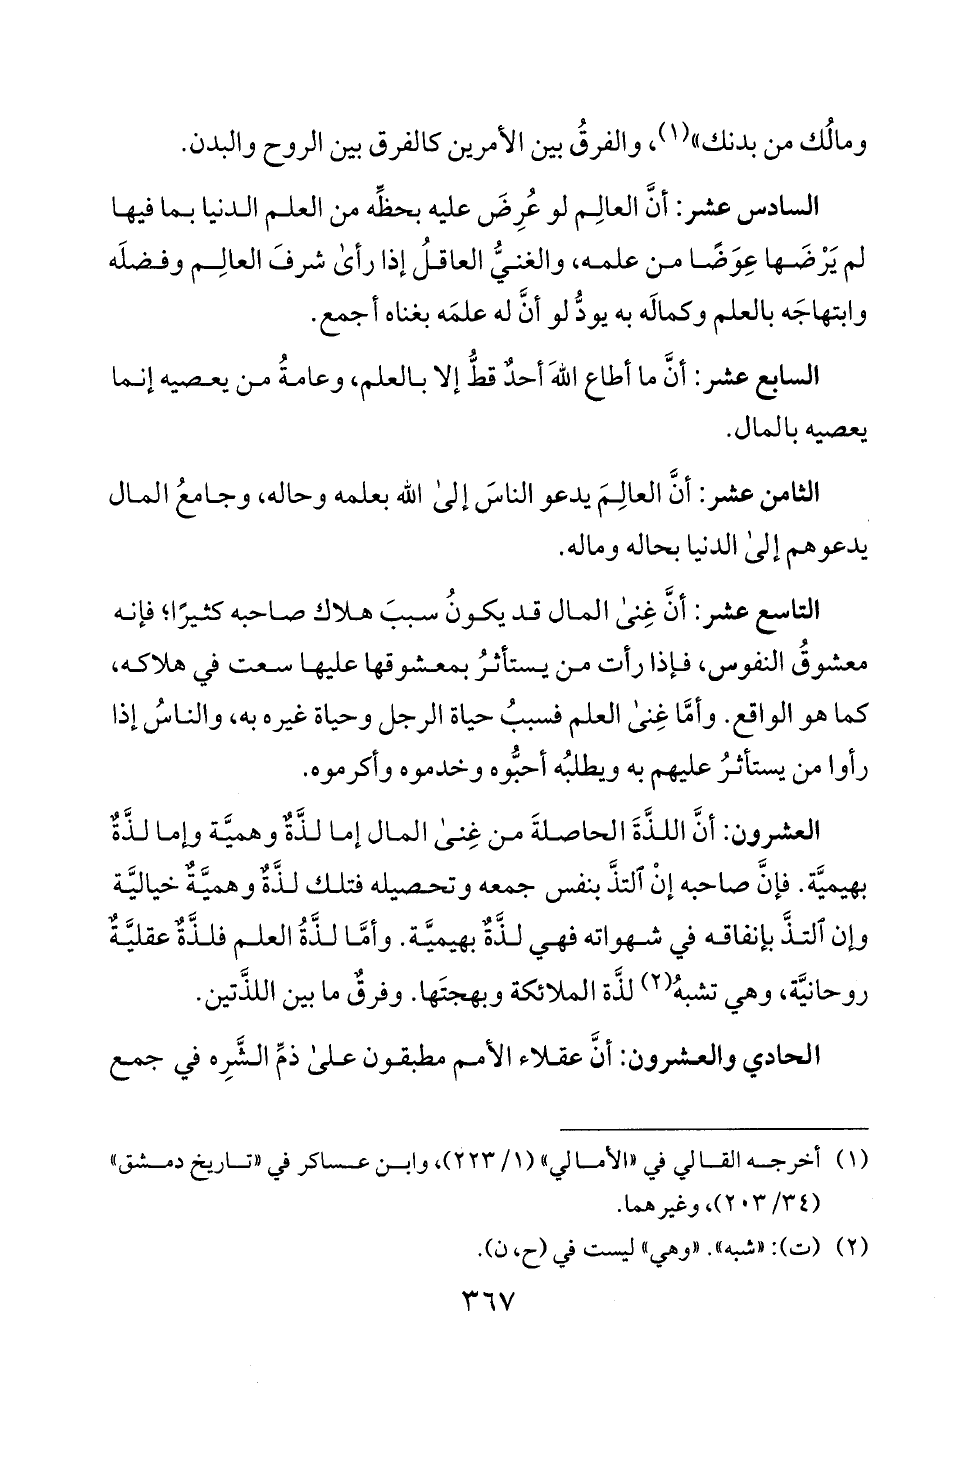 ومالُك من بدنك»(١)، والفرقُ بين الأمرين كالفرق بين الروح والبدن.
السادس عشر: أنَّ العالِم لو عُرِضَ عليه بحظِّه من العلم الدنيا بما فيها
لم يَرْضَها عِوَضًا من علمه، والغنيُّ العاقلُ إذا رأىٰ شرفَ العالِم وفضلَه
وابتهاجَه بالعلم وكمالَه به يودُّ لو أنَّ له علمَه بغناه أجمع.
السابع عشر: أنَّ ما أطاع اللهَ أحدٌ قطُّ إلا بالعلم، وعامةُ من يعصيه إنما
يعصيه بالمال.
الثامن عشر: أنَّ العالِمَ يدعو الناسَ إلىٰ الله بعلمه وحاله، وجامعُ المال
يدعوهم إلىٰ الدنيا بحاله وماله.
التاسع عشر: أنَّ غِنىٰ المال قد يكونُ سببَ هلاك صاحبه كثيرًا؛ فإنه
معشوقُ النفوس، فإذا رأت من يستأثرُ بمعشوقها عليها سعت في هلاكه،
كما هو الواقع. وأمَّا غِنىٰ العلم فسببُ حياة الرجل وحياة غيره به، والناسُ إذا
رأوا من يستأثرُ عليهم به ويطلبُه أحبُّوه وخدموه وأكرموه.
العشرون: أنَّ اللذَّةَ الحاصلةَ من غِنىٰ المال إما لذَّةٌ وهميَّة وإما لذَّةٌ
بهيميَّة. فإنَّ صاحبه إنْ ٱلتذَّ بنفس جمعه وتحصيله فتلك لذَّةٌ وهميَّةٌ خياليَّة
وإن ٱلتذَّ بإنفاقه في شهواته فهي لذَّةٌ بهيميَّة. وأمَّا لذَّةُ العلم فلذَّةٌ عقليَّةٌ
روحانيَّة، وهي تشبهُ(٢) لذَّة الملائكة وبهجتَها. وفرقٌ ما بين اللذَّتين.
الحادي والعشرون: أنَّ عقلاء الأمم مطبقون علىٰ ذمِّ الشَّرِه في جمع
(١) أخرجه القالي في «الأمالي» (١/ ٢٢٣)، وابن عساكر في «تاريخ دمشق»
(٣٤/ ٢٠٣)، وغيرهما.
(٢) (ت): «شبه». «وهي» ليست في (ح، ن).
٣٦٧